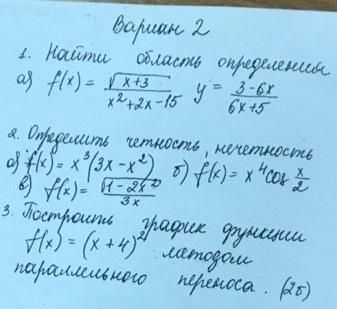 Вариан 2
1. Найти область определения
а) f(x) = √(x+3) / (x²+2x-15) y = (3-6x) / (6x+5)
2. Определить четность, нечетность
а) f(x) = x³(3x-x²) б) f(x) = x⁴cos x/2
в) f(x) = √(1-2x²) / 3x
3. Построить график функции
f(x) = (x+4)² методом
параллельного переноса. (2б)